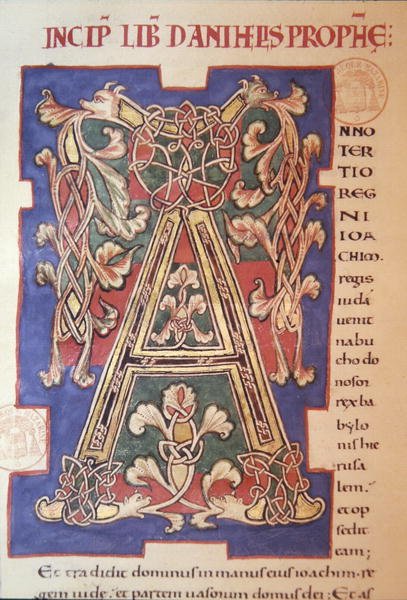 INCIP̄ LIB̄ DANIHELIS PROPHE̅Ę:
A
NNO
TER
TIO
REG
NI
IOA
CHIM.
regis
iuda
uenit
nabu
chodo
nosor
rex ba
bylo
nis hie
rusa
lem.
et op
sedit
eam;
Et tradidit dominus in manus eius ioachim. re
gem iudę. et partem uasorum domus dei; Et as
MAZARINE